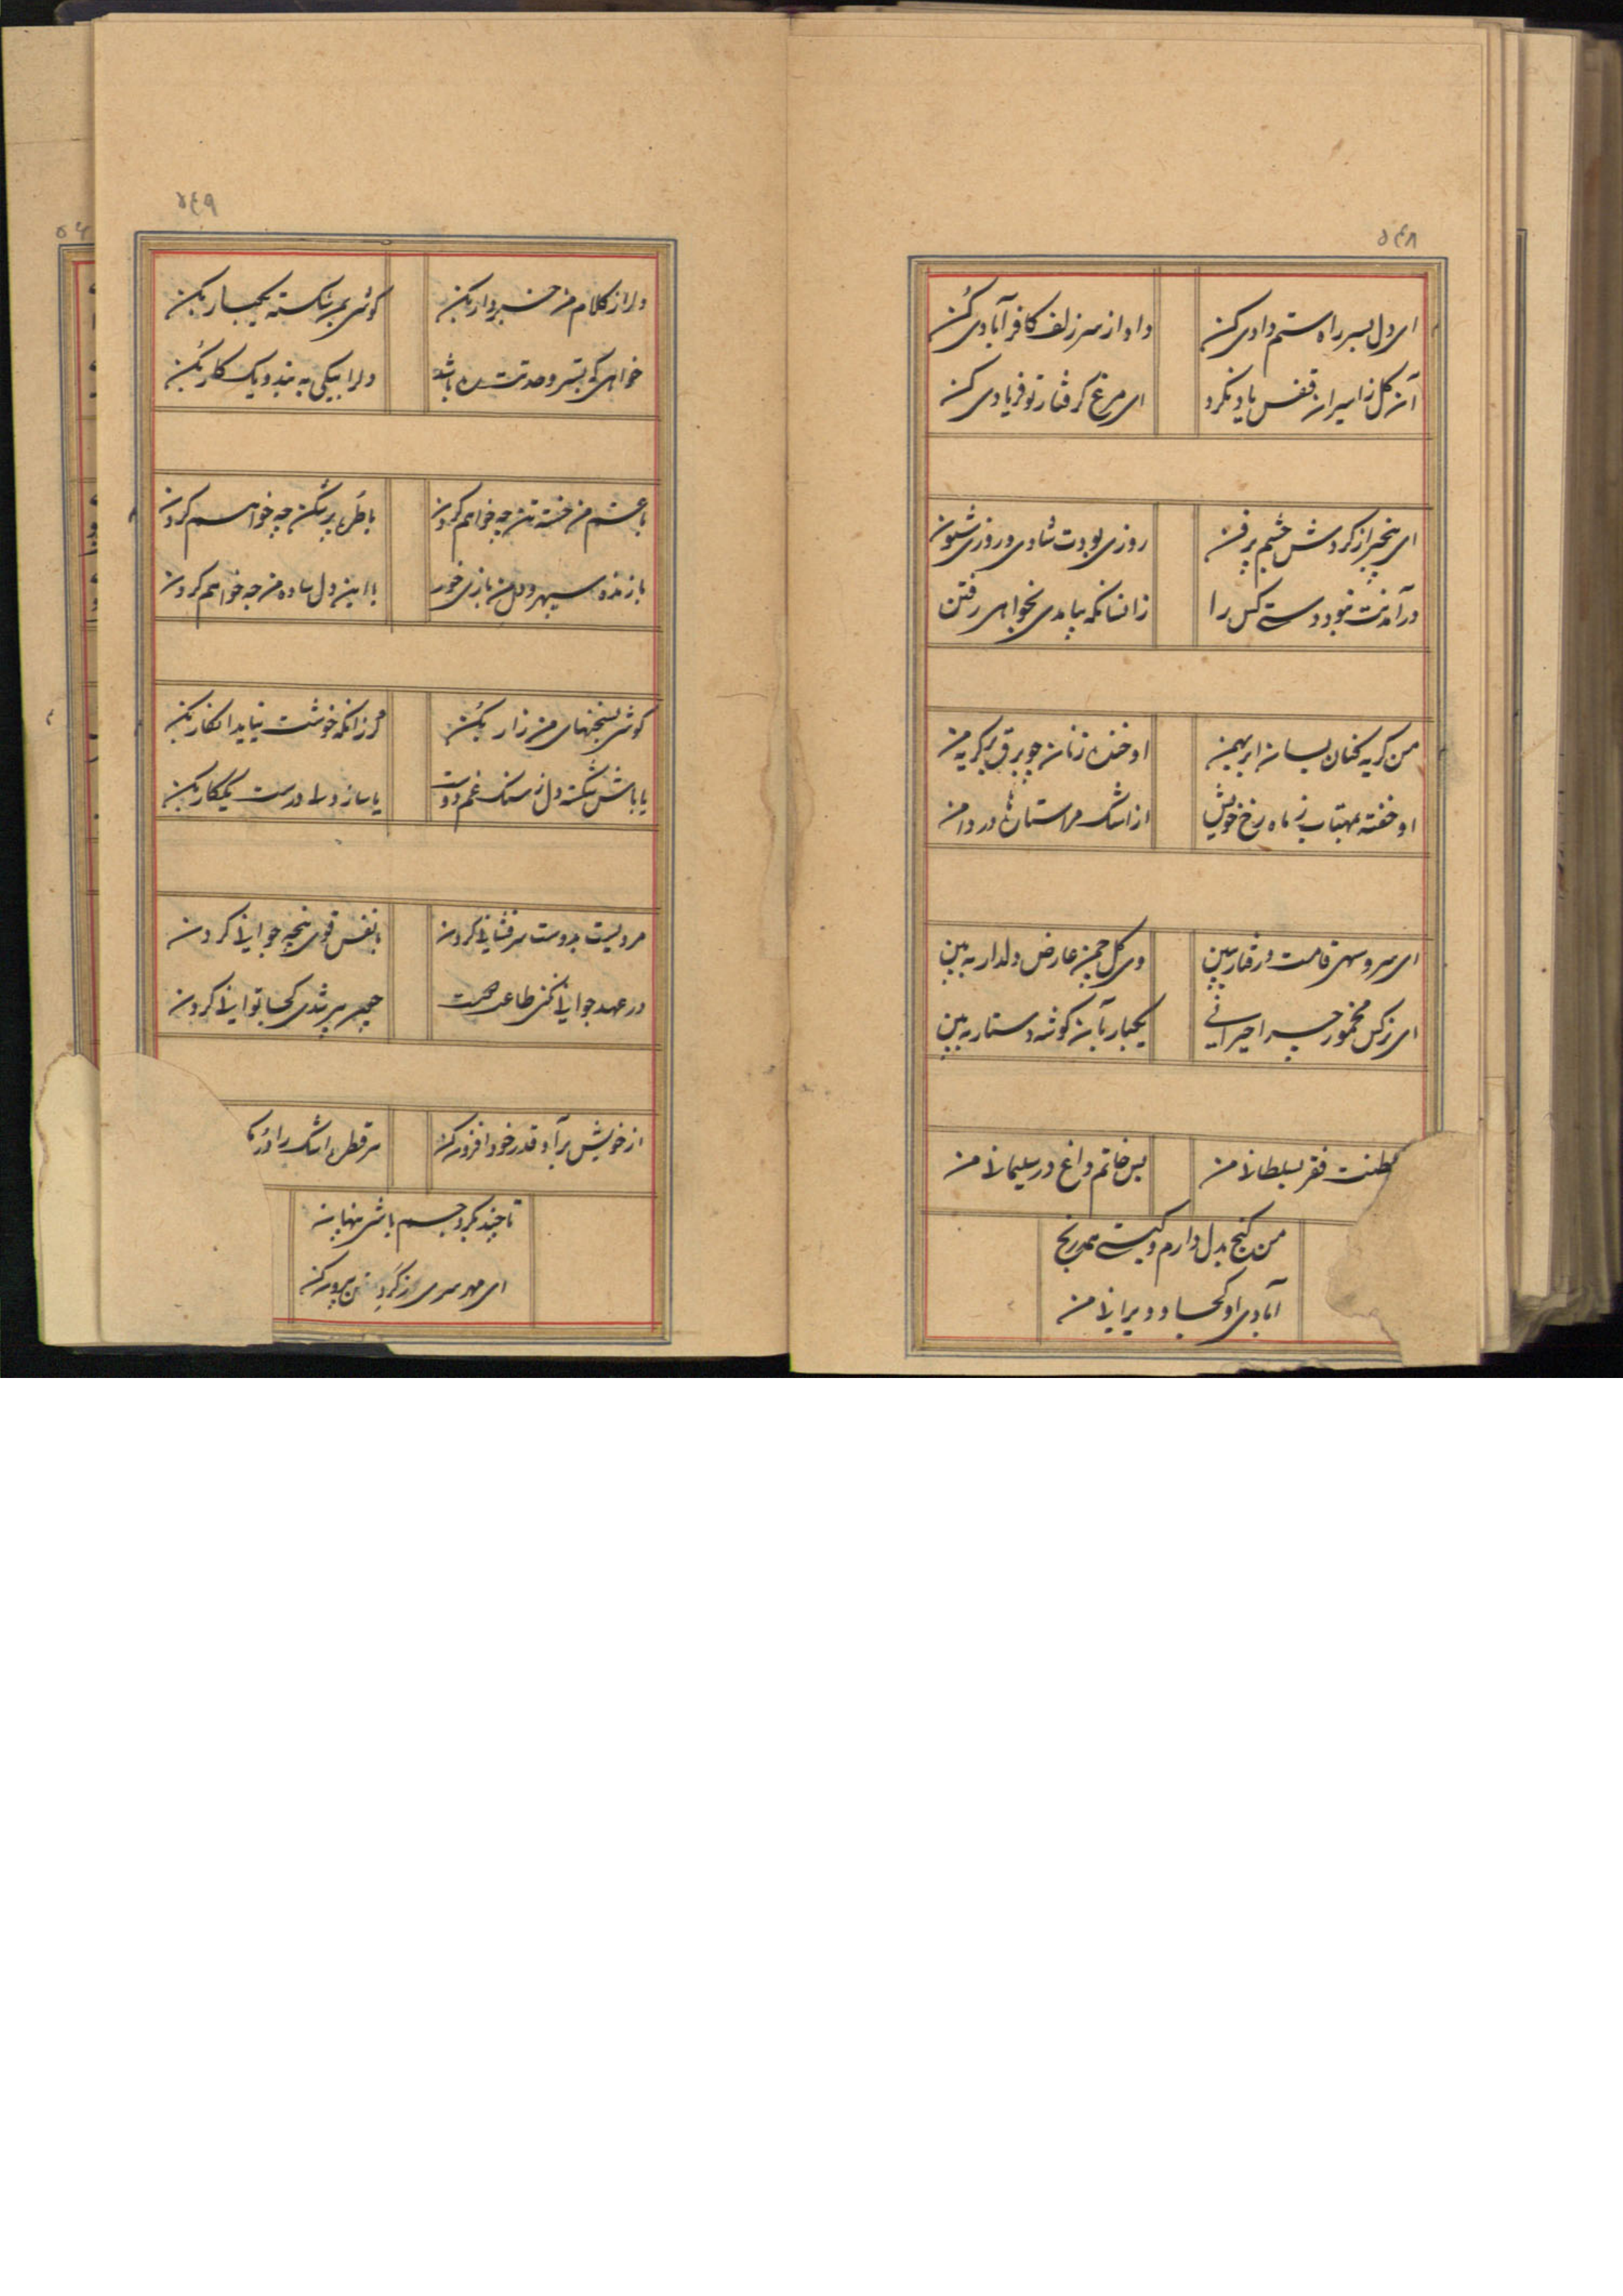 ۵۴۸
ای دل بسر راه ستم دادی کن
داد از سر زلف کافر آبادی کن
آن گل ز اسیران قفس یاد نکرد
ای مرغ گرفتار تو فریادی کن
ای بیخبر از گردش چشم پر فن
روزی بودت شادی و روزی شیون
در آمدنت نبود دستی کس را
زانسانکه بیامدی بخواهی رفتن
من گریه کنان بسان ابر بهمن
او خنده زنان چو برق بر گریه من
او خفته بمهتاب ز ماه رخ خویش
از اشک مرا ستارها در دامن
ای سرو سهی قامت و رفتار ببین
وی گل چمن عارض دلدار به بین
ای نرگس مخمور چرا حیرانی
یکبار بآن گوشه دستار به بین
سلطنت فقر بسلطانی من
بس خاتم داغ در سلیمانی من
من گنج بدل دارم و گیتی همه رنج
آبادی او کجا و ویرانی من
۵۴۹
دل را ز کلام من خبردار بکن
گوشی بمن شکسته یکبار بکن
خواهی که بتسر وحدتت ره باشد
دل را بیکی به بند و یک کار بکن
با عشق من خسته تن چه خواهم کردن
با طره پر شکن چه خواهم کردن
بازنده سپهر و دل من بازی خور
با این دل ساده من چه خواهم کردن
گوشی بسخنهای من زار بکن
ور زانکه خوشت نیاید انکار بکن
یا باش شکسته دل ز سنگ غم دوست
یا ساز دلی درست یک کار بکن
مردیست بدوست سرفشانی کردن
با نفس قوی پنجه جوانی کردن
در عهد جوانی کن طاعت
چون پیر شدی کجا توانی کردن
از خویش برآ و قدر خود افزون کن
هر قطره اشک را
تا چند بگرد جسم باشی پنهان
ای مهر سری ز گرد بیرون کن